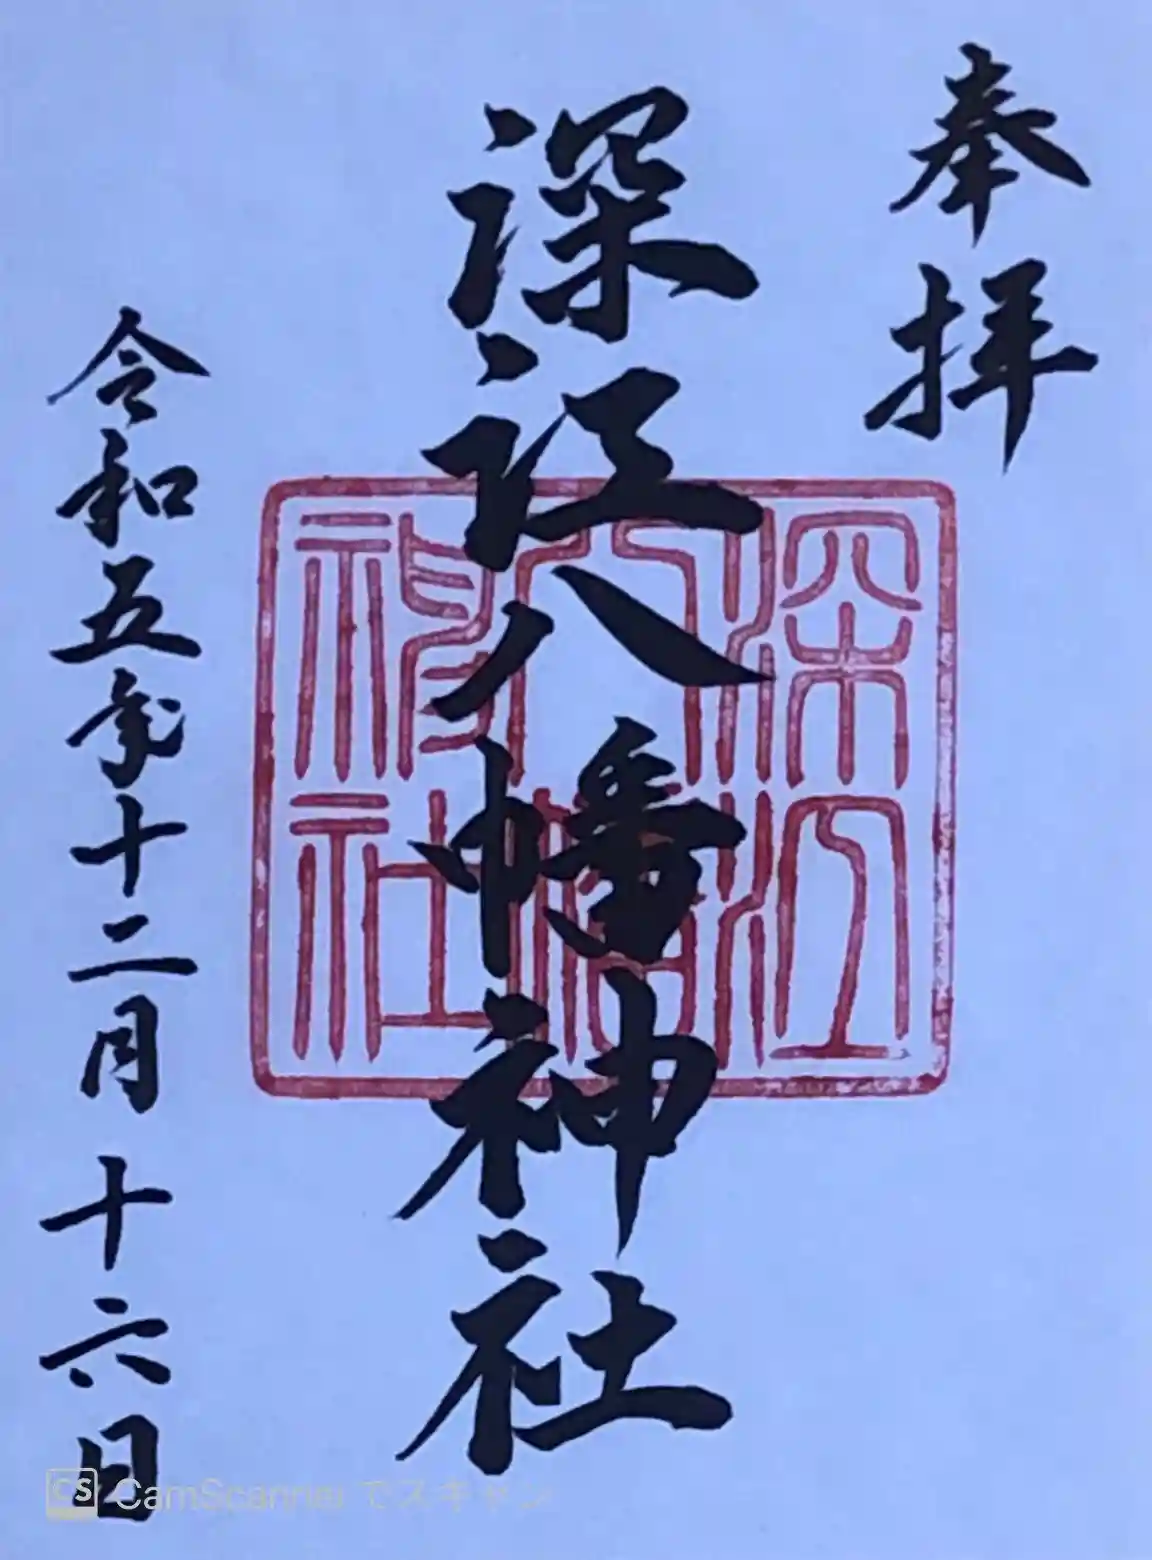 奉拝
深江八幡神社
深江八幡神社
令和五年十二月十六日
CS CamScanner でスキャン